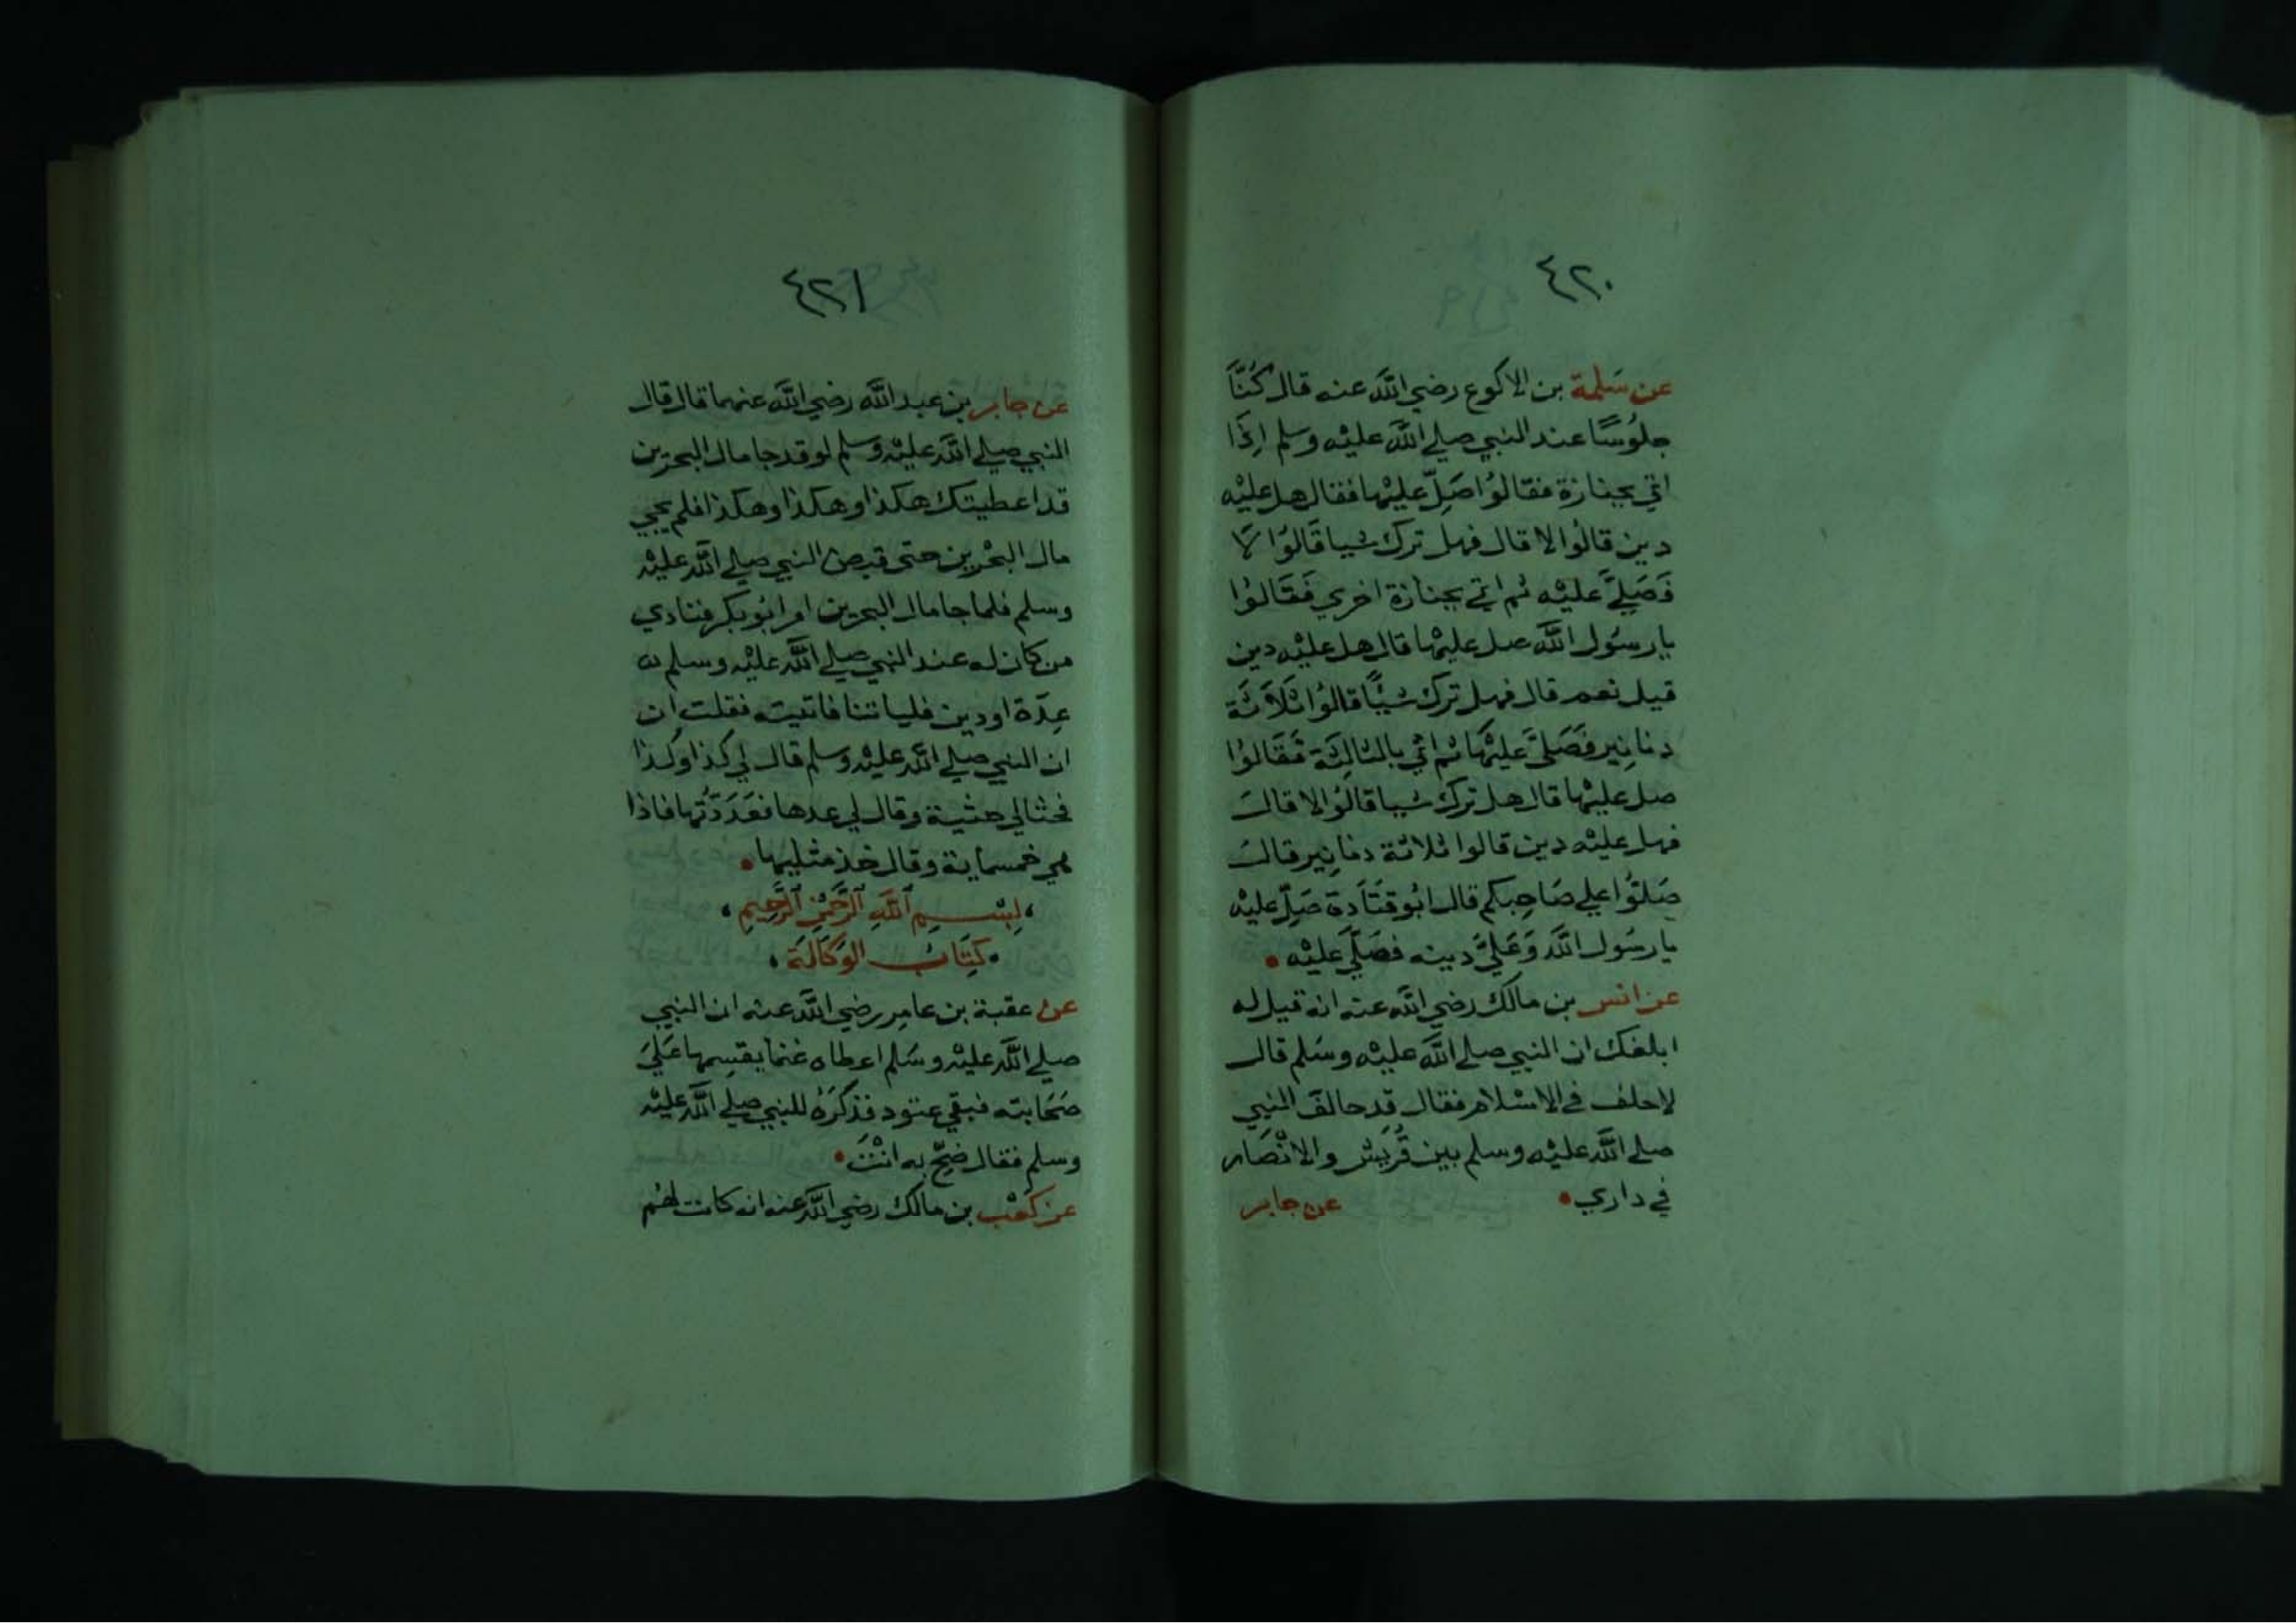 ٤٢٠
عن سَلمة بن الاكوع رضي الله عنه قال كُنَّا
جلوُسًا عند النبي صلي الله عليْه وسلم اِذَا
اتي بجنازة فقالوُا صَلِّ عليْها فقال هل عليْه
دين قالوُا لا قال فهل ترك شيا قَالوُا لَا
فَصَلَّيَ عليْه ثم اتي بجنازة اخري فَقَالوُا
يا رسُول الله صل عليْها قال هل عليْه دين
قيل نعم قال فهل ترك شيًا قالوُا ثلَاثَة
دنانِير فَصَلَّيَ عليْهَا ثم اتي بالثالِثَة فَقَالوُا
صل عليْها قال هل ترك شيا قالوُا لا قالَ
فهل عليْه دين قالوا ثلاثة دنانِير قالَ
صَلوُّا علي صَاحِبكم قال ابُو قتَادة صَلِّ عليْه
يا رسُول الله وَعَليَّ دينه فصَلَّي عليْه
عن انس بن مالك رضي الله عنه انه قيل له
ابلغك ان النبي صلي الله عليْه وسَلم قال
لاحلف في الاسْلام فقال قد حالفَ النبِي
صلي الله عليْه وسلم بين قُريْش والانْصَار
في داري
عن جابر
٤٢١
عن جابر بن عبد الله رضي الله عنهما قال قال
النبي صلي الله عليْه وَسلم لو قد جا مال البحرَين
قد اعطيتك هكذا وهكذا وهكذا فلم يجي
مال البحْرين حتي قبض النبي صلي الله عليْه
وسلم فلما جا مال البحرين امر ابُو بكر فنادي
من كان له عند النبي صلي الله عليْه وسلم له
عِدَة او دين فلياتنا فاتيته فقلت ان
ان النبي صلي الله عليْه وسلم قال لي كذا وكذا
فحثا لي حثية وقال لي عدها فعَدَدْتُها فاذا
هي خمسماية وقال خذ مثليها
بِسْمِ اللَّهِ الرَّحْمٰنِ الرَّحِيمِ
كِتَابُ الوَكَالَة
عن عقبة بن عامِر رضي الله عنه ان النبي
صلي الله عليْه وسَلم اعطاه غنما يقسِمها عَلَيَ
صَحَابته فبقي عتود فذكرَهُ للنبي صلي الله عليْه
وسلم فقال ضحِّ به انْتَ
عن كعْب بن مالك رضي الله عنه انه كانت لهُم